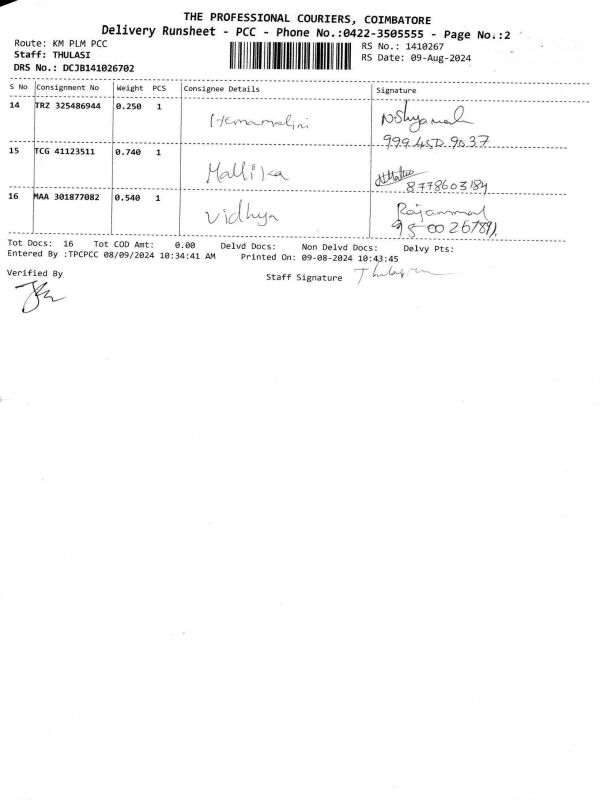 THE PROFESSIONAL COURIERS, COIMBATORE
Delivery Runsheet - PCC - Phone No.:0422-3505555 - Page No.:2
Route: KM PLM PCC
RS No.: 1410267
Staff: THULASI
RS Date: 09-Aug-2024
DRS No.: DCJB141026702
S No Consignment No Weight PCS Consignee Details Signature
14 TRZ 325486944 0.250 1 Hemamalini
15 TCG 41123511 0.740 1 Mallika
8778603184
16 MAA 301877082 0.540 1 Vidhya Rajammal
Tot Docs: 16 Tot COD Amt: 0.00 Delvd Docs: Non Delvd Docs: Delvy Pts:
Entered By :TPCPCC 08/09/2024 10:34:41 AM Printed On: 09-08-2024 10:43:45
Verified By
Staff Signature